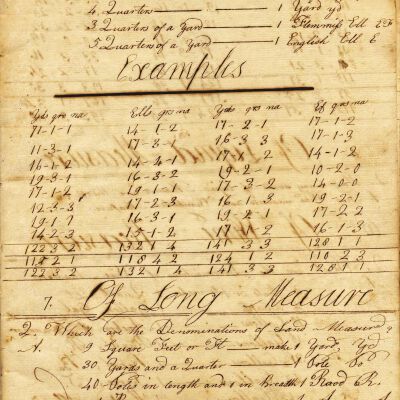 4 Quarters 1 Yard yd
3 Quarters of a Yard 1 Flemmish Ell
5 Quarters of a Yard 1 English Ell E
Examples
Yds qrs na Ells qrs na Yds qrs na Ef qrs na
71-1-1 14-1-2 17-2-1 17-1-2
11-3-1 17-3-1 16-3-3 17-1-3
16-1-2 14-4-1 17-2 14-1-2
19-3-1 16-3-2 19-2-1 10-2-0
17-1-2 19-1-1 17-3-2 14-0-0
12-3-3 17-2-3 16-1-3 19-2-1
19-1-1 16-3-1 19-2-1 17-2-2
14-2-3 15-1-2 2 16-1-3
122 3 2 132 1 4 141 3 3 128 1 1
2 1 118 4 2 124 1 2 110 2 3
122 3 2 132 1 4 141 3 3 128 1 1
7. Of Long Measure
2. Which are the Denominations of Land Measure?
A. 9 Square Feet or Ft make 1 Yard, Yd
30 Yards and a Quarter 1 Pole Po
40 Poles in length and 1 in Breadth 1 Rood R.